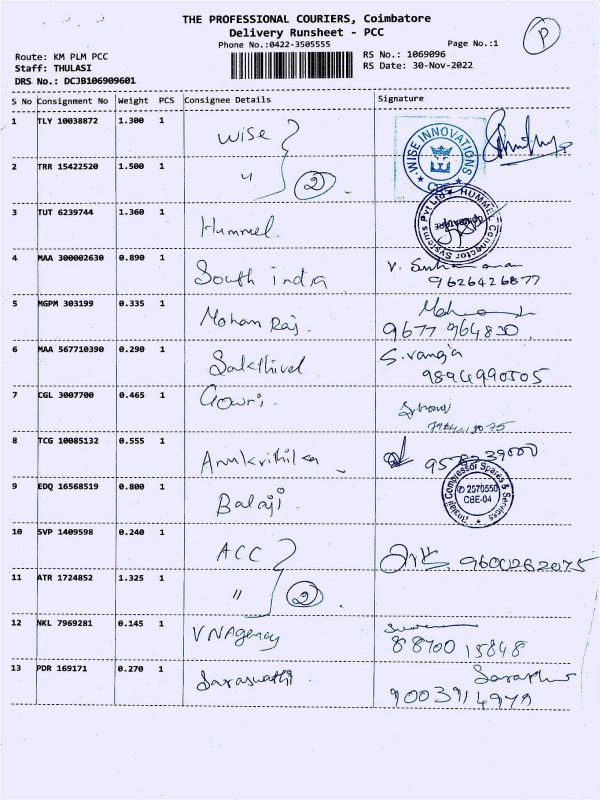 THE PROFESSIONAL COURIERS, Coimbatore
Delivery Runsheet - PCC
Phone No.:0422-3505555
Page No.:1
P
Route: KM PLM PCC
Staff: THULASI
DRS No.: DCJB106909601
RS No.: 1069096
RS Date: 30-Nov-2022
S No Consignment No Weight PCS Consignee Details Signature
1 TLY 10038872 1.300 1 Wise
WISE INNOVATIONS
2 TRR 15422520 1.500 1 " 2
HUMMEL Connector Systems Pvt Ltd
3 TUT 6239744 1.360 1 Hummel
4 MAA 300002630 0.890 1 South india
9626426877
5 MGPM 303199 0.335 1 Mohan Raj
9677 964830
6 MAA 567710390 0.290 1 Sakthivel S.vanaja
9894990505
7 CGL 3007700 0.465 1 Gowri
8 TCG 10085132 0.555 1
9 EDQ 16568519 0.800 1 Balaji
Compressor Spares & Services
✆ 2570550
CBE-04
10 SVP 1409598 0.240 1 ACC 9600262075
11 ATR 1724852 1.325 1 " 2
12 NKL 7969281 0.145 1 VN Agency
88700 15848
13 PDR 169171 0.270 1 Saraswathi